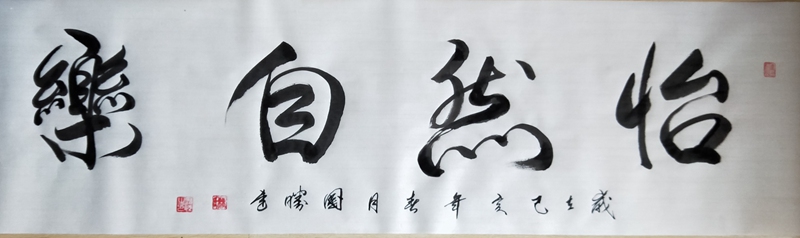 怡然自樂
歲在己亥年春月國勝書